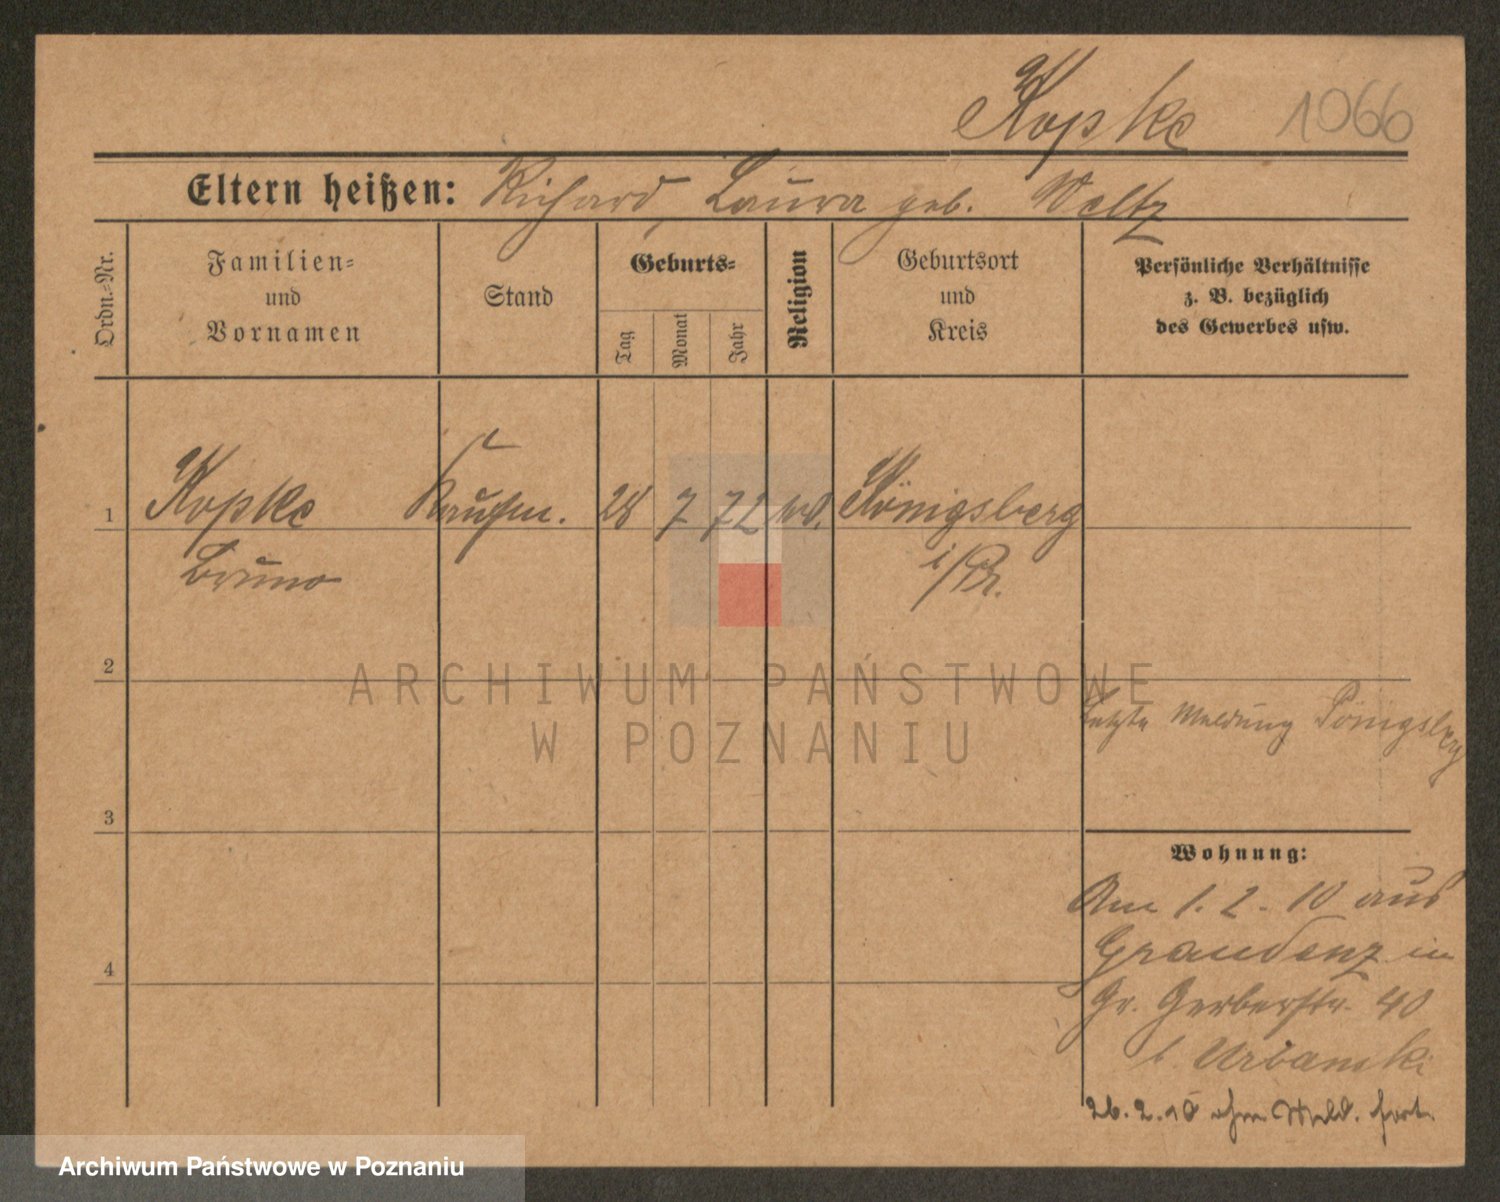 Kopke 1066
Eltern heißen: Richard, Laura geb. Weltz
Ordn.-Nr.
Familien-
und
Vornamen
Stand
Geburts-
Tag
Monat
Jahr
Religion
Geburtsort
und
Kreis
Persönliche Verhältnisse
z. B. bezüglich
des Gewerbes usw.
1 Kopke Kaufm. 28 7 72 Königsberg
Bruno i/Pr.
2
Letzte Meldung Königsberg
3
Wohnung:
Am 1. 2. 10 aus
Graudenz in
4
Gr. Gerberstr. 40
b. Urbanski
26.2.10 ohne Meld. fort.
ARCHIWUM PAŃSTWOWE
W POZNANIU
Archiwum Państwowe w Poznaniu